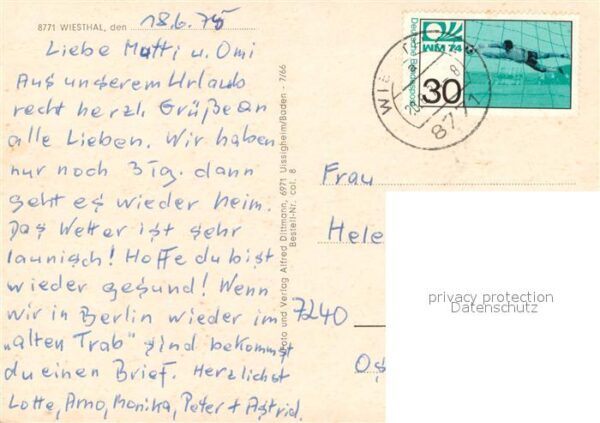 8771 WIESTHAL, den 18.6.75
Liebe Mutti u. Omi
Aus unserem Urlaub
recht herzl. Grüße an
alle Lieben. Wir haben
nur noch 3 Tg. dann
geht es wieder heim.
Das Wetter ist sehr
launisch! Hoffe du bist
wieder gesund! Wenn
wir in Berlin wieder im
„alten Trab" sind bekommst
du einen Brief. Herzlichst
Lotte, Arno, Monika, Peter + Astrid.
Foto und Verlag Alfred Dittmann, 6971 Uissigheim/Baden - 7/66
Bestell-Nr. col. 8
WM 74
Deutsche Bundespost
30
WIE
8771
Frau
Hele
7240
privacy protection
Datenschutz